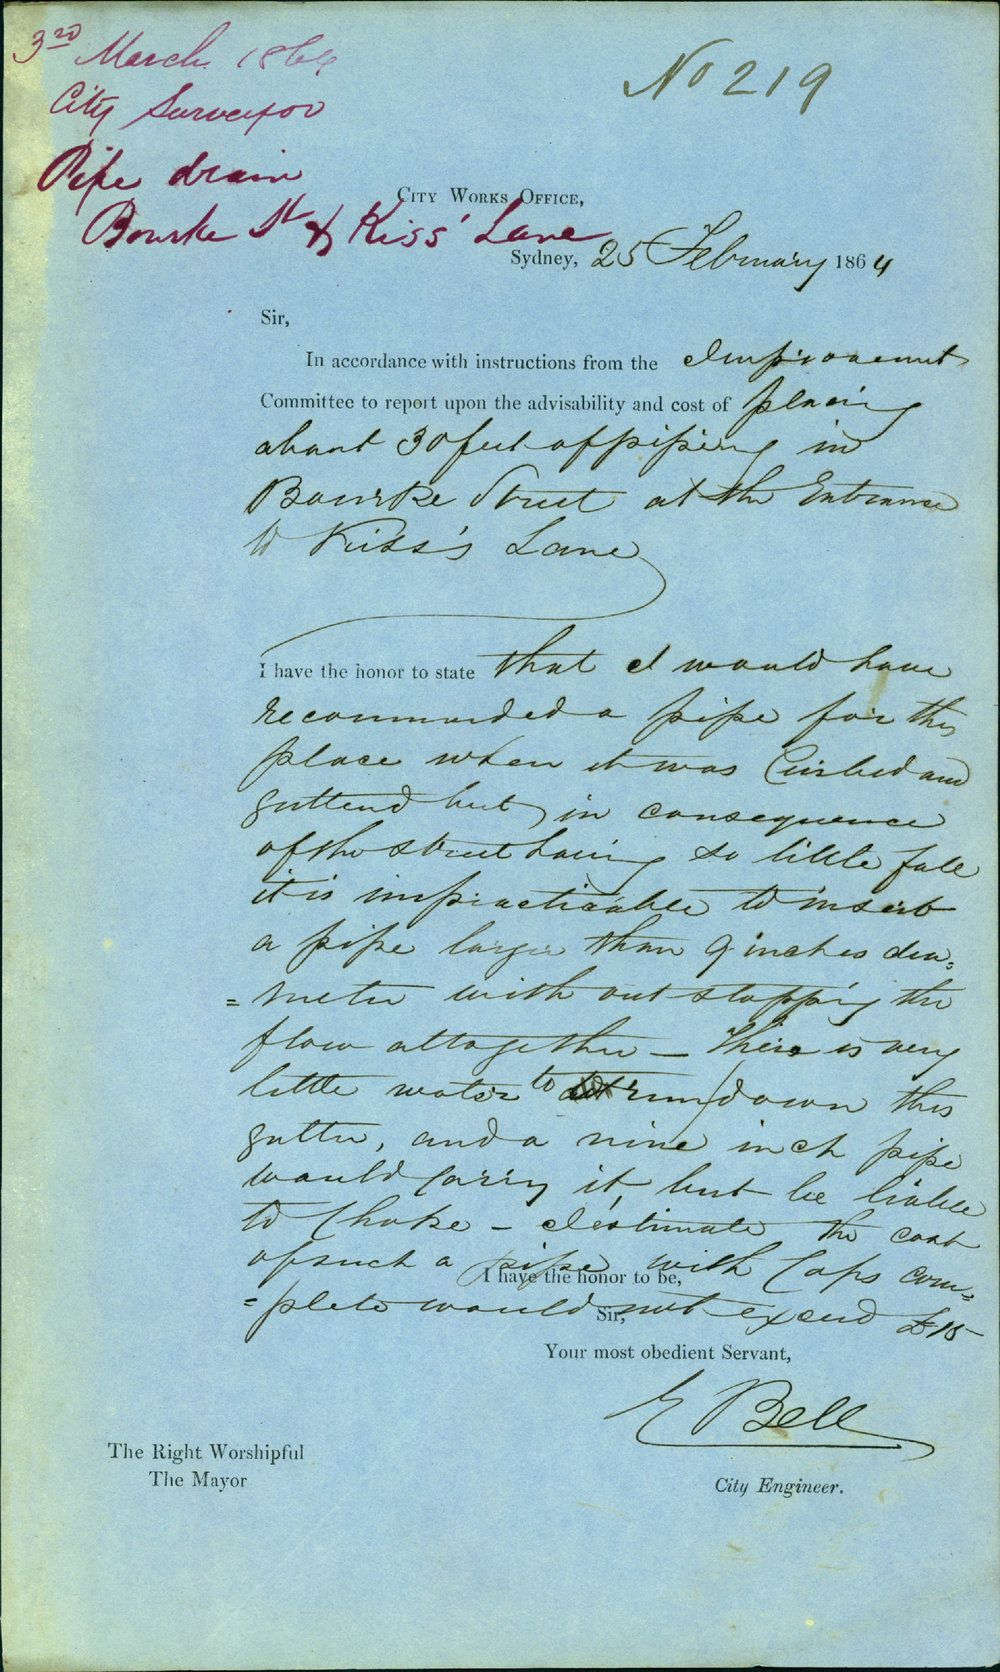 3rd March 1864
City Surveyor
Pipe drain
Bourke St & Kiss' Lane
No 219
City Works Office,
Sydney, 25 February 1864
Sir,
In accordance with instructions from the Improvement
Committee to report upon the advisability and cost of placing
about 30 feet of pipeing in
Bourke Street at the Entrance
to Kiss's Lane
I have the honor to state that I would have
recommended a pipe for this
place when it was Curbed and
guttered but, in consequence
of the street having so little fall
it is impracticable to insert
a pipe larger than 9 inches dia=
=meter with out stopping the
flow altogether — There is very
little water to run down this
gutter, and a nine inch pipe
would carry it, but be liable
to Choke — I estimate the cost
of such a pipe with Caps com=
=plete would not exceed £15
I have the honor to be,
Sir,
Your most obedient Servant,
E Bell
City Engineer.
The Right Worshipful
The Mayor